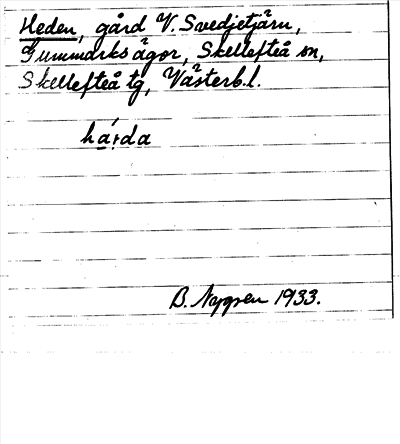 Heden, gård V. Svedjetjärn,
Gummarks ägor, Skellefteå sn,
Skellefteå tg, Västerb.l.
B. Nygren 1933.